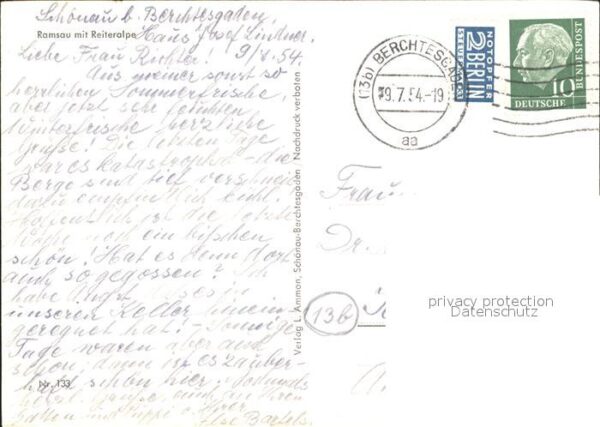 Schönau b. Berchtesgaden,
Ramsau mit Reiteralpe
Haus Josef Lindner,
Liebe Frau Richter! 9/7.54.
Aus meiner sonst so
herrlichen Sommerfrische,
aber jetzt sehr gekühlten
Winterfrische herzliche
Grüße! Die letzten Tage
war es katastrophal - die
Berge sind tief verschneit
dazu empfindlich kühl.
Hoffentlich ist die letzte
Woche noch ein bißchen
schön! Hat es denn dort
auch so gegossen? Ich
habe Angst, daß es in
unseren Keller hinein-
geregnet hat! - Sonnige
Tage waren aber auch
schon, dann ist es zauber-
haft schön hier.
Nr. 133
herzl. Grüße, auch an Ihren
Gatten und Ihrer
Ilse Bartels
Verlag L. Ammon, Schönau-Berchtesgaden Nachdruck verboten
(13b) BERCHTESGADEN
-9.7.54.-19
aa
NOTOPFER
2 BERLIN
STEUERMARKE
10
DEUTSCHE
BUNDESPOST
Frau
Dr.
13b
privacy protection
Datenschutz